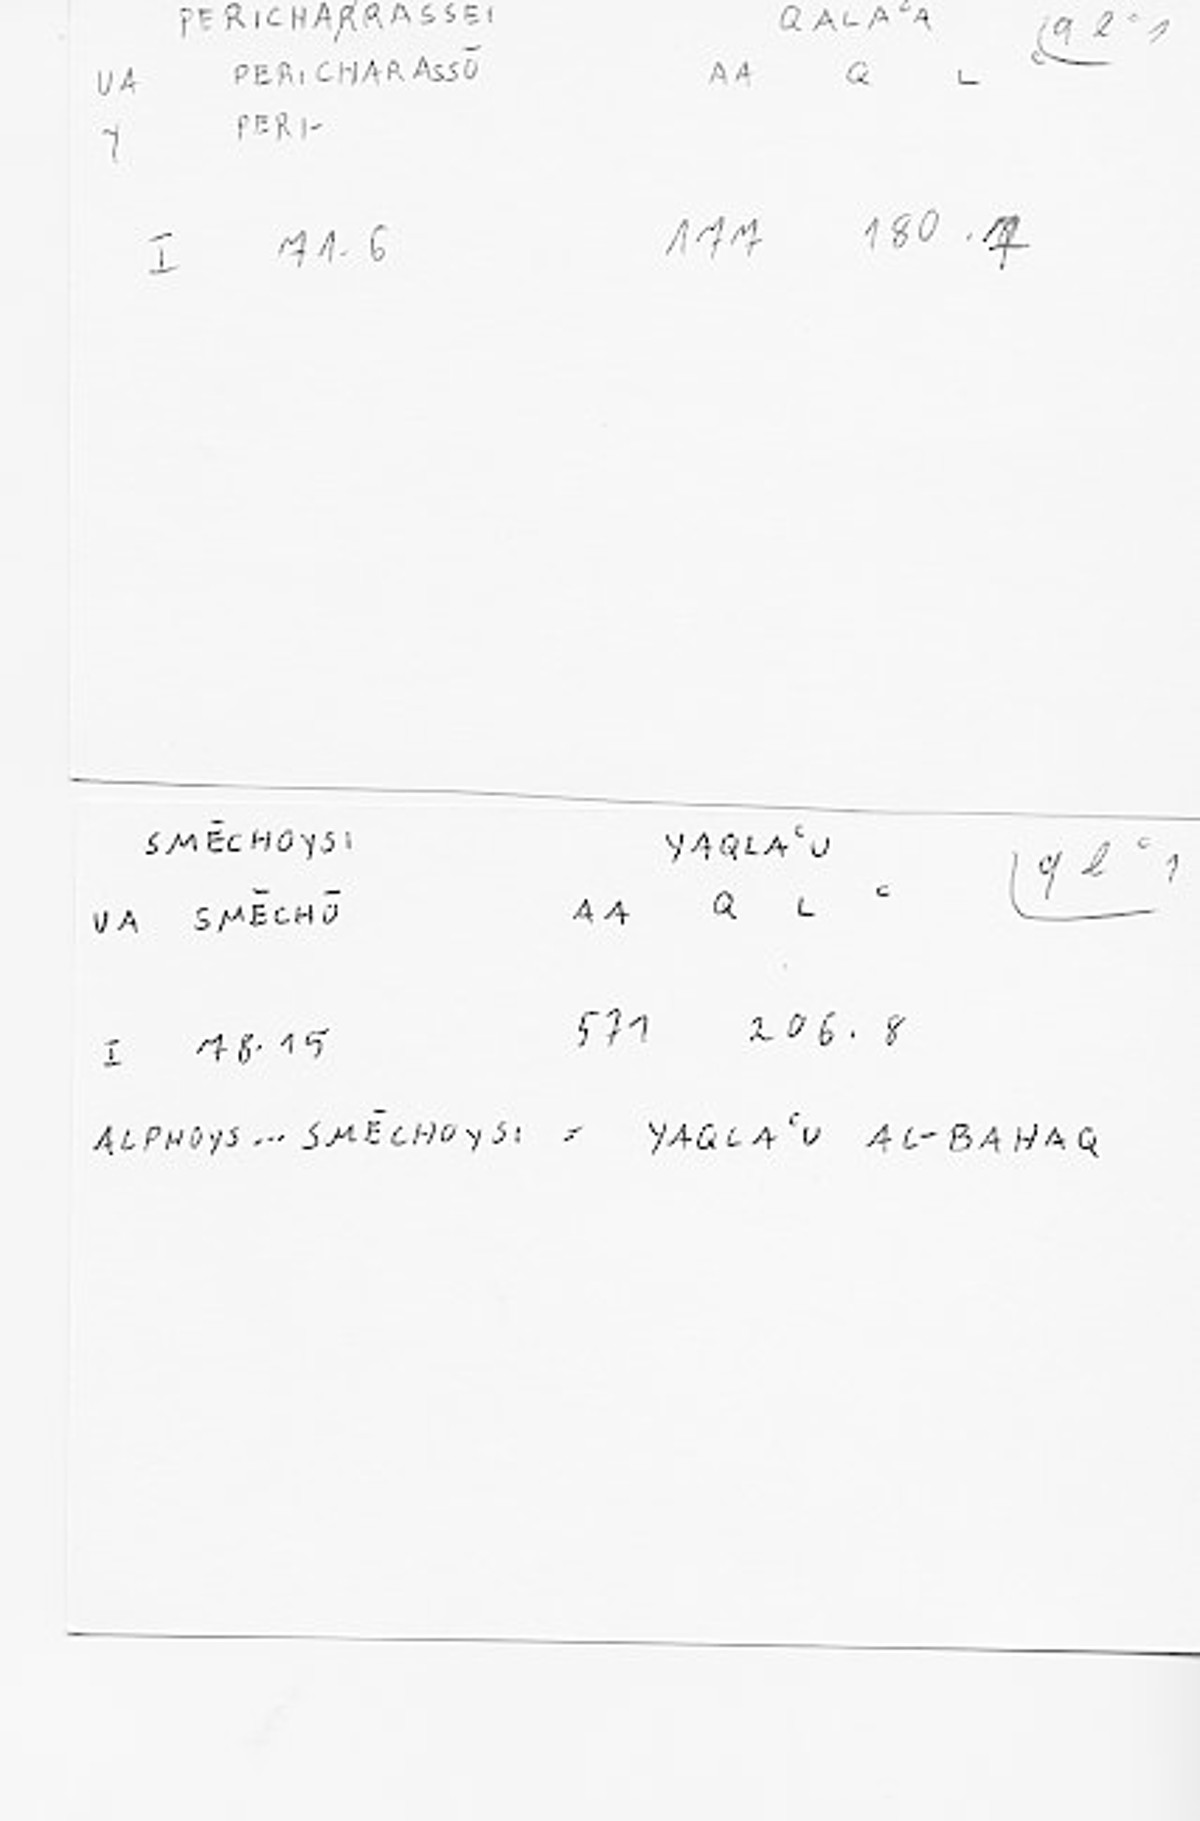 PERICHARRASSEI QALAʿA qlʿ1
UA PERICHARASSŌ AA Q L
Y PERI-
I 71.6 177 180.
SMĒCHOYSI YAQLAʿU qlʿ1
UA SMĒCHŌ AA Q L ʿ
I 78.15 571 206.8
ALPHOYS... SMĒCHOYSI = YAQLAʿU AL-BAHAQ